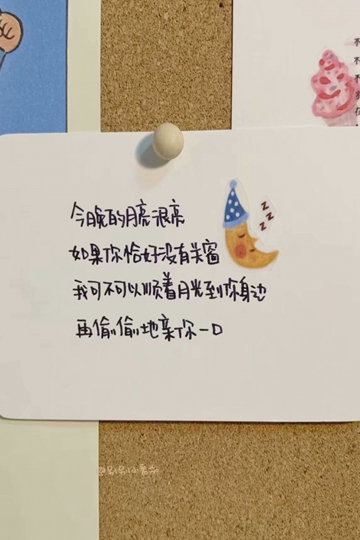 今晚的月亮很亮
zzz
如果你恰好没有关窗
我可不可以顺着月光到你身边
再偷偷地亲你一口